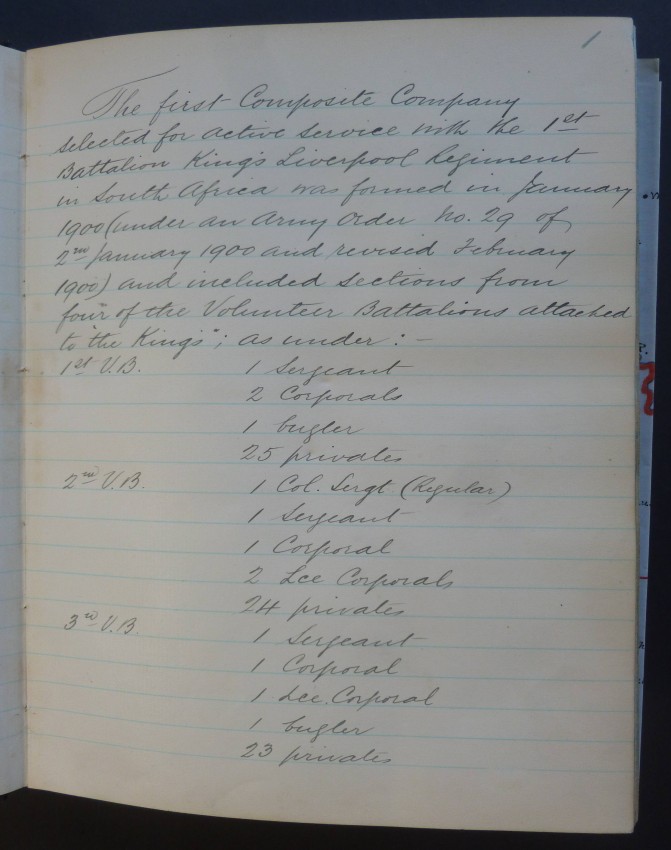 1
The first Composite Company
selected for active service with the 1st
Battalion King's Liverpool Regiment
in South Africa was formed in January
1900 (under an Army Order No. 29 of
2nd January 1900 and revised February
1900) and included sections from
four of the Volunteer Battalions attached
to "the Kings"; as under:-
1st V.B. 1 Sergeant
2 Corporals
1 bugler
25 privates
2nd V.B. 1 Col. Sergt (Regular)
1 Sergeant
1 Corporal
2 Lce Corporals
24 privates
3rd V.B. 1 Sergeant
1 Corporal
1 Lce. Corporal
1 bugler
23 privates